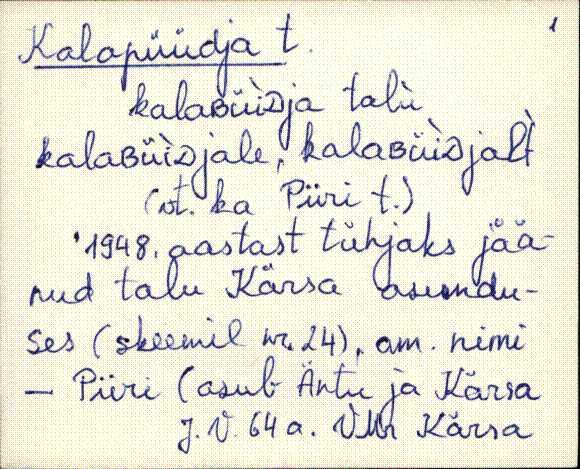 1
Kalapüüdja t.
kalaʙüìᴅja talù
kalaʙüìᴅjale, kalaʙüìᴅjal̀t
(vt. ka Piiri t.)
1948. aastast tühjaks jää-
nud talu Kärsa asundu-
ses (skeemil nr. 24), am. nimi
– Piiri (asub Äntu ja Kärsa
J. V. 64 a. VMr Kärsa